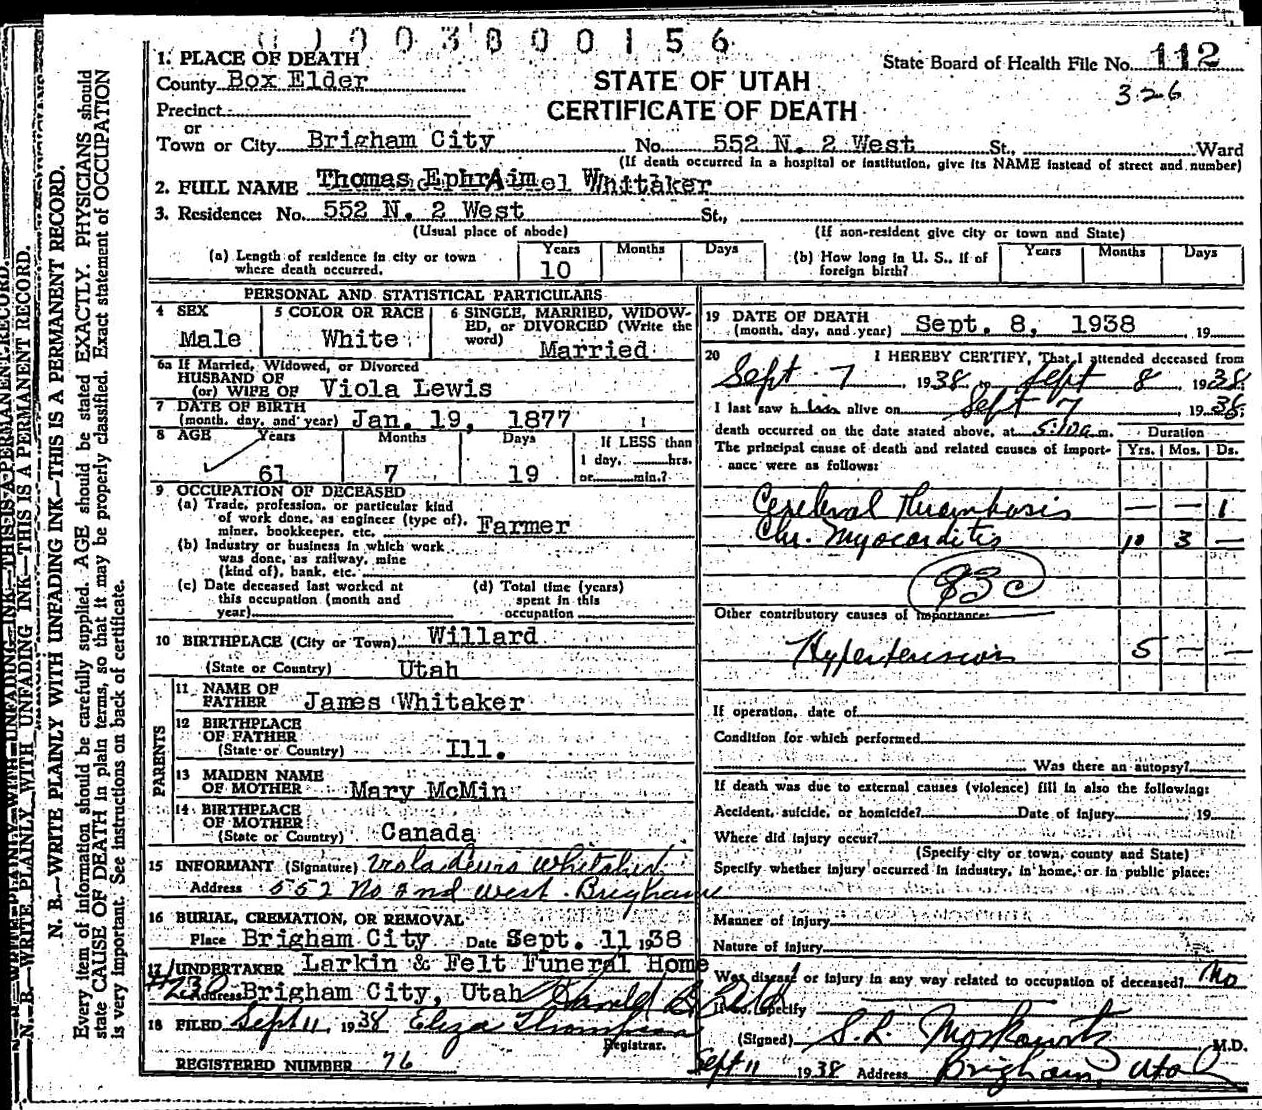 0 1 0 0 3 8 0 0 1 5 6
1. PLACE OF DEATH
County Box Elder
Precinct
or
Town or City Brigham City No. 552 N. 2 West St., Ward
(If death occurred in a hospital or institution, give its NAME instead of street and number)
STATE OF UTAH
CERTIFICATE OF DEATH
State Board of Health File No. 112
326
2. FULL NAME Thomas Ephraim Whitaker
3. Residence: No. 552 N. 2 West St.,
(Usual place of abode) (If non-resident give city or town and State)
(a) Length of residence in city or town where death occurred. Years 10 Months Days
(b) How long in U. S., if of foreign birth? Years Months Days
PERSONAL AND STATISTICAL PARTICULARS
4 SEX Male
5 COLOR OR RACE White
6 SINGLE, MARRIED, WIDOW-
ED, or DIVORCED (Write the
word) Married
6a If Married, Widowed, or Divorced
HUSBAND OF
(or) WIFE OF Viola Lewis
7 DATE OF BIRTH
(month, day, and year) Jan. 19, 1877
8 AGE Years 61 Months 7 Days 19 If LESS than
1 day, hrs.
or min.?
9 OCCUPATION OF DECEASED
(a) Trade, profession, or particular kind
of work done, as engineer (type of),
miner, bookkeeper, etc. Farmer
(b) Industry or business in which work
was done, as railway, mine
(kind of), bank, etc.
(c) Date deceased last worked at
this occupation (month and
year)
(d) Total time (years)
spent in this
occupation
10 BIRTHPLACE (City or Town) Willard
(State or Country) Utah
PARENTS
11 NAME OF
FATHER James Whitaker
12 BIRTHPLACE
OF FATHER
(State or Country) Ill.
13 MAIDEN NAME
OF MOTHER Mary McMin
14 BIRTHPLACE
OF MOTHER
(State or Country) Canada
15 INFORMANT (Signature) Viola Lewis Whitaker
Address 552 No 2nd West. Brigham
16 BURIAL, CREMATION, OR REMOVAL
Place Brigham City Date Sept. 11 1938
17 UNDERTAKER Larkin & Felt Funeral Home
#230 Address Brigham City, Utah Harold B. Felt
18 FILED Sept 11, 1938 Eliza Thompson
Registrar.
REGISTERED NUMBER 76
19 DATE OF DEATH
(month, day, and year) Sept. 8, 1938 19
20 I HEREBY CERTIFY, That I attended deceased from
Sept 7, 1938, to Sept 8 1938.
I last saw him alive on Sept 7, 1938.
death occurred on the date stated above, at 5:10a m. Duration
The principal cause of death and related causes of import-
ance were as follows: Yrs. Mos. Ds.
Cerebral Thrombosis — — 1
Chr. Myocarditis 10 3 —
83c
Other contributory causes of importance:
Hypertension 5 — —
If operation, date of
Condition for which performed
Was there an autopsy?
If death was due to external causes (violence) fill in also the following:
Accident, suicide, or homicide? Date of Injury 19
Where did injury occur?
(Specify city or town, county and State)
Specify whether injury occurred in industry, in home, or in public place:
Manner of Injury
Nature of Injury
Was disease or injury in any way related to occupation of deceased? No
If so, specify
(Signed) S. L. Moskowitz M.D.
Sept 11 1938 Address Brigham, Utah
N. B.—WRITE PLAINLY WITH UNFADING INK—THIS IS A PERMANENT RECORD.
Every item of information should be carefully supplied. AGE should be stated EXACTLY. PHYSICIANS should
state CAUSE OF DEATH in plain terms, so that it may be properly classified. Exact statement of OCCUPATION
is very important. See instructions on back of certificate.
N. B.—WRITE PLAINLY WITH UNFADING INK—THIS IS A PERMANENT RECORD.